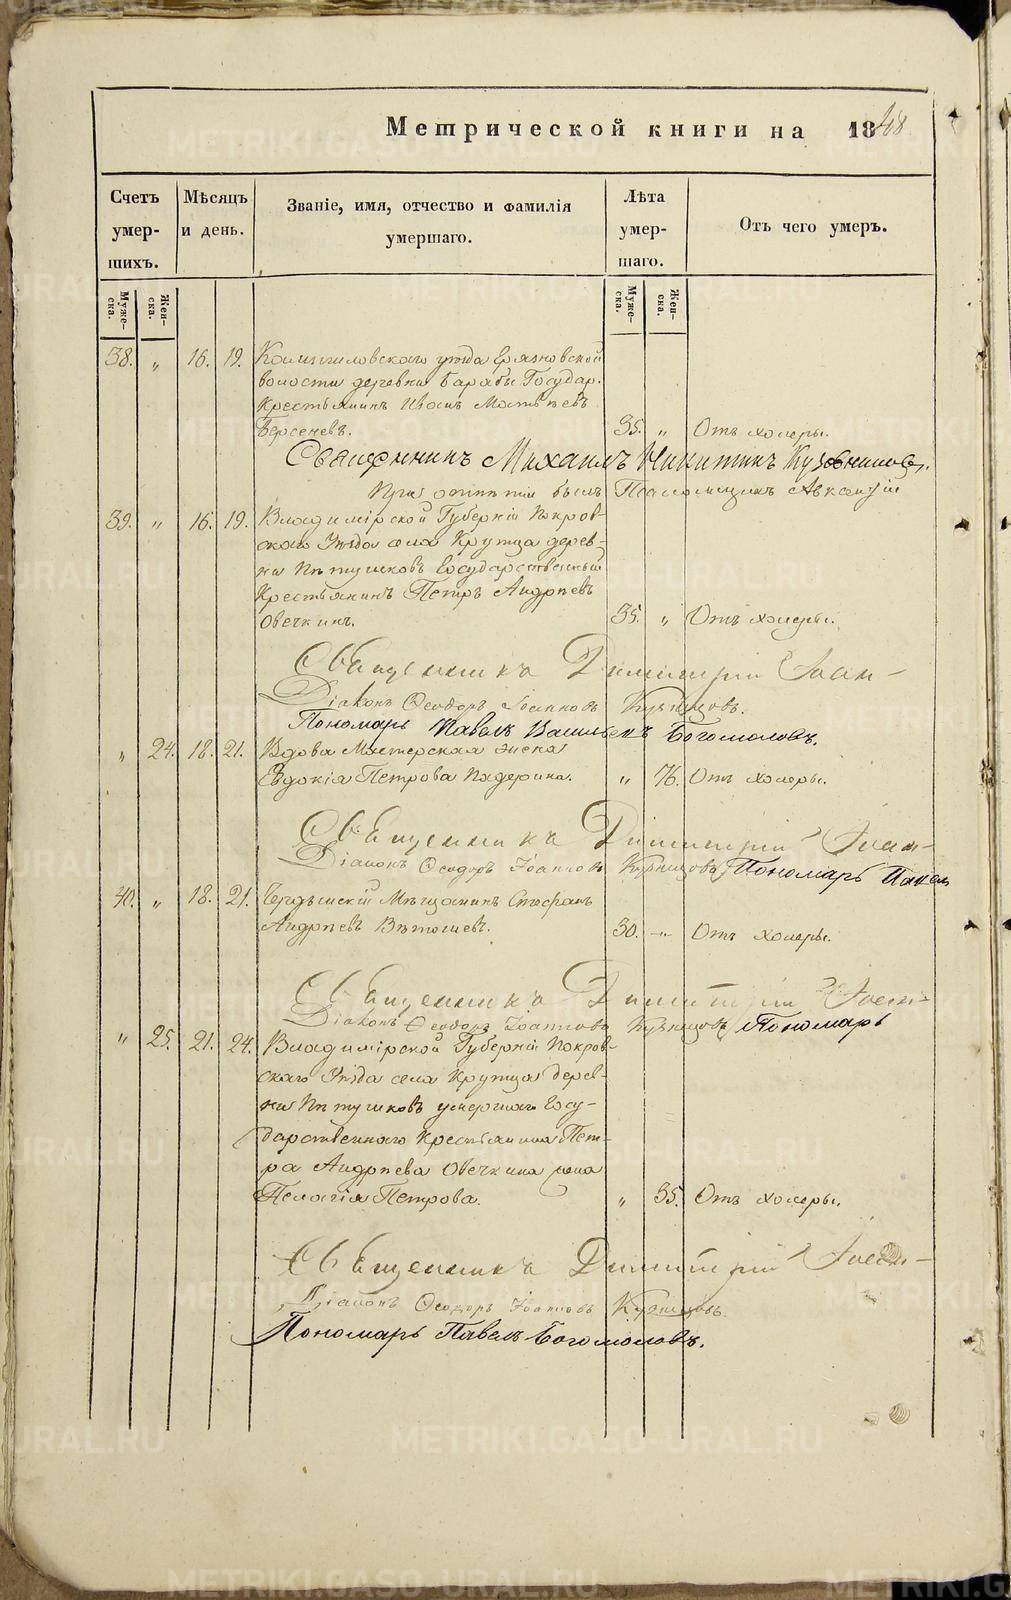 Метрической книги на 1848.
Счетъ умершихъ. Мѣсяцъ и день. Званіе, имя, отчество и фамилія умершаго. Лѣта умершаго. Отъ чего умеръ.
Муже-ска. Жен-ска. Муже-ска. Жен-ска.
38. „ 16. 19. Камышловскаго уѣзда
волости деревни Барабы Государ.
Крестьянинъ Матвѣевъ
Берсеневъ. 35. „ Отъ холеры.
Священникъ Михаилъ Никитинъ
При отпѣтіи былъ
39. „ 16. 19. Владимірской Губерніи Покров-
скаго Уѣзда села Крутца дерев-
ни Пѣтушковъ Государственный
Крестьянинъ Петръ Андреевъ
Овечкинъ. 35. „ Отъ холеры.
Священникъ Димитрій Іоан-
Діаконъ Ѳеодоръ Іоанновъ
Пономарь Павелъ Васильевъ Богомоловъ.
„ 24. 18. 21. Вдова Мастерская жена
Евдокія Петрова „ 76. Отъ холеры.
Священникъ Димитрій Іоан-
Діаконъ Ѳеодоръ Іоанновъ Пономарь Павелъ
40. „ 18. 21. Мѣщанинъ Стефанъ
Андреевъ 30. „ Отъ холеры.
Священникъ Димитрій Іоан-
Діаконъ Ѳеодоръ Іоанновъ Пономарь
„ 25. 21. 24. Владимірской Губерніи Покров-
скаго Уѣзда села Крутца дерев-
ни Пѣтушковъ умершаго Госу-
дарственнаго Крестьянина Пет-
ра Андреева Овечкина жена
Пелагія Петрова. „ 35. Отъ холеры.
Священникъ Димитрій Іоан-
Діаконъ Ѳеодоръ Іоанновъ
Пономарь Павелъ Богомоловъ.
METRIKI.GASO-URAL.RU